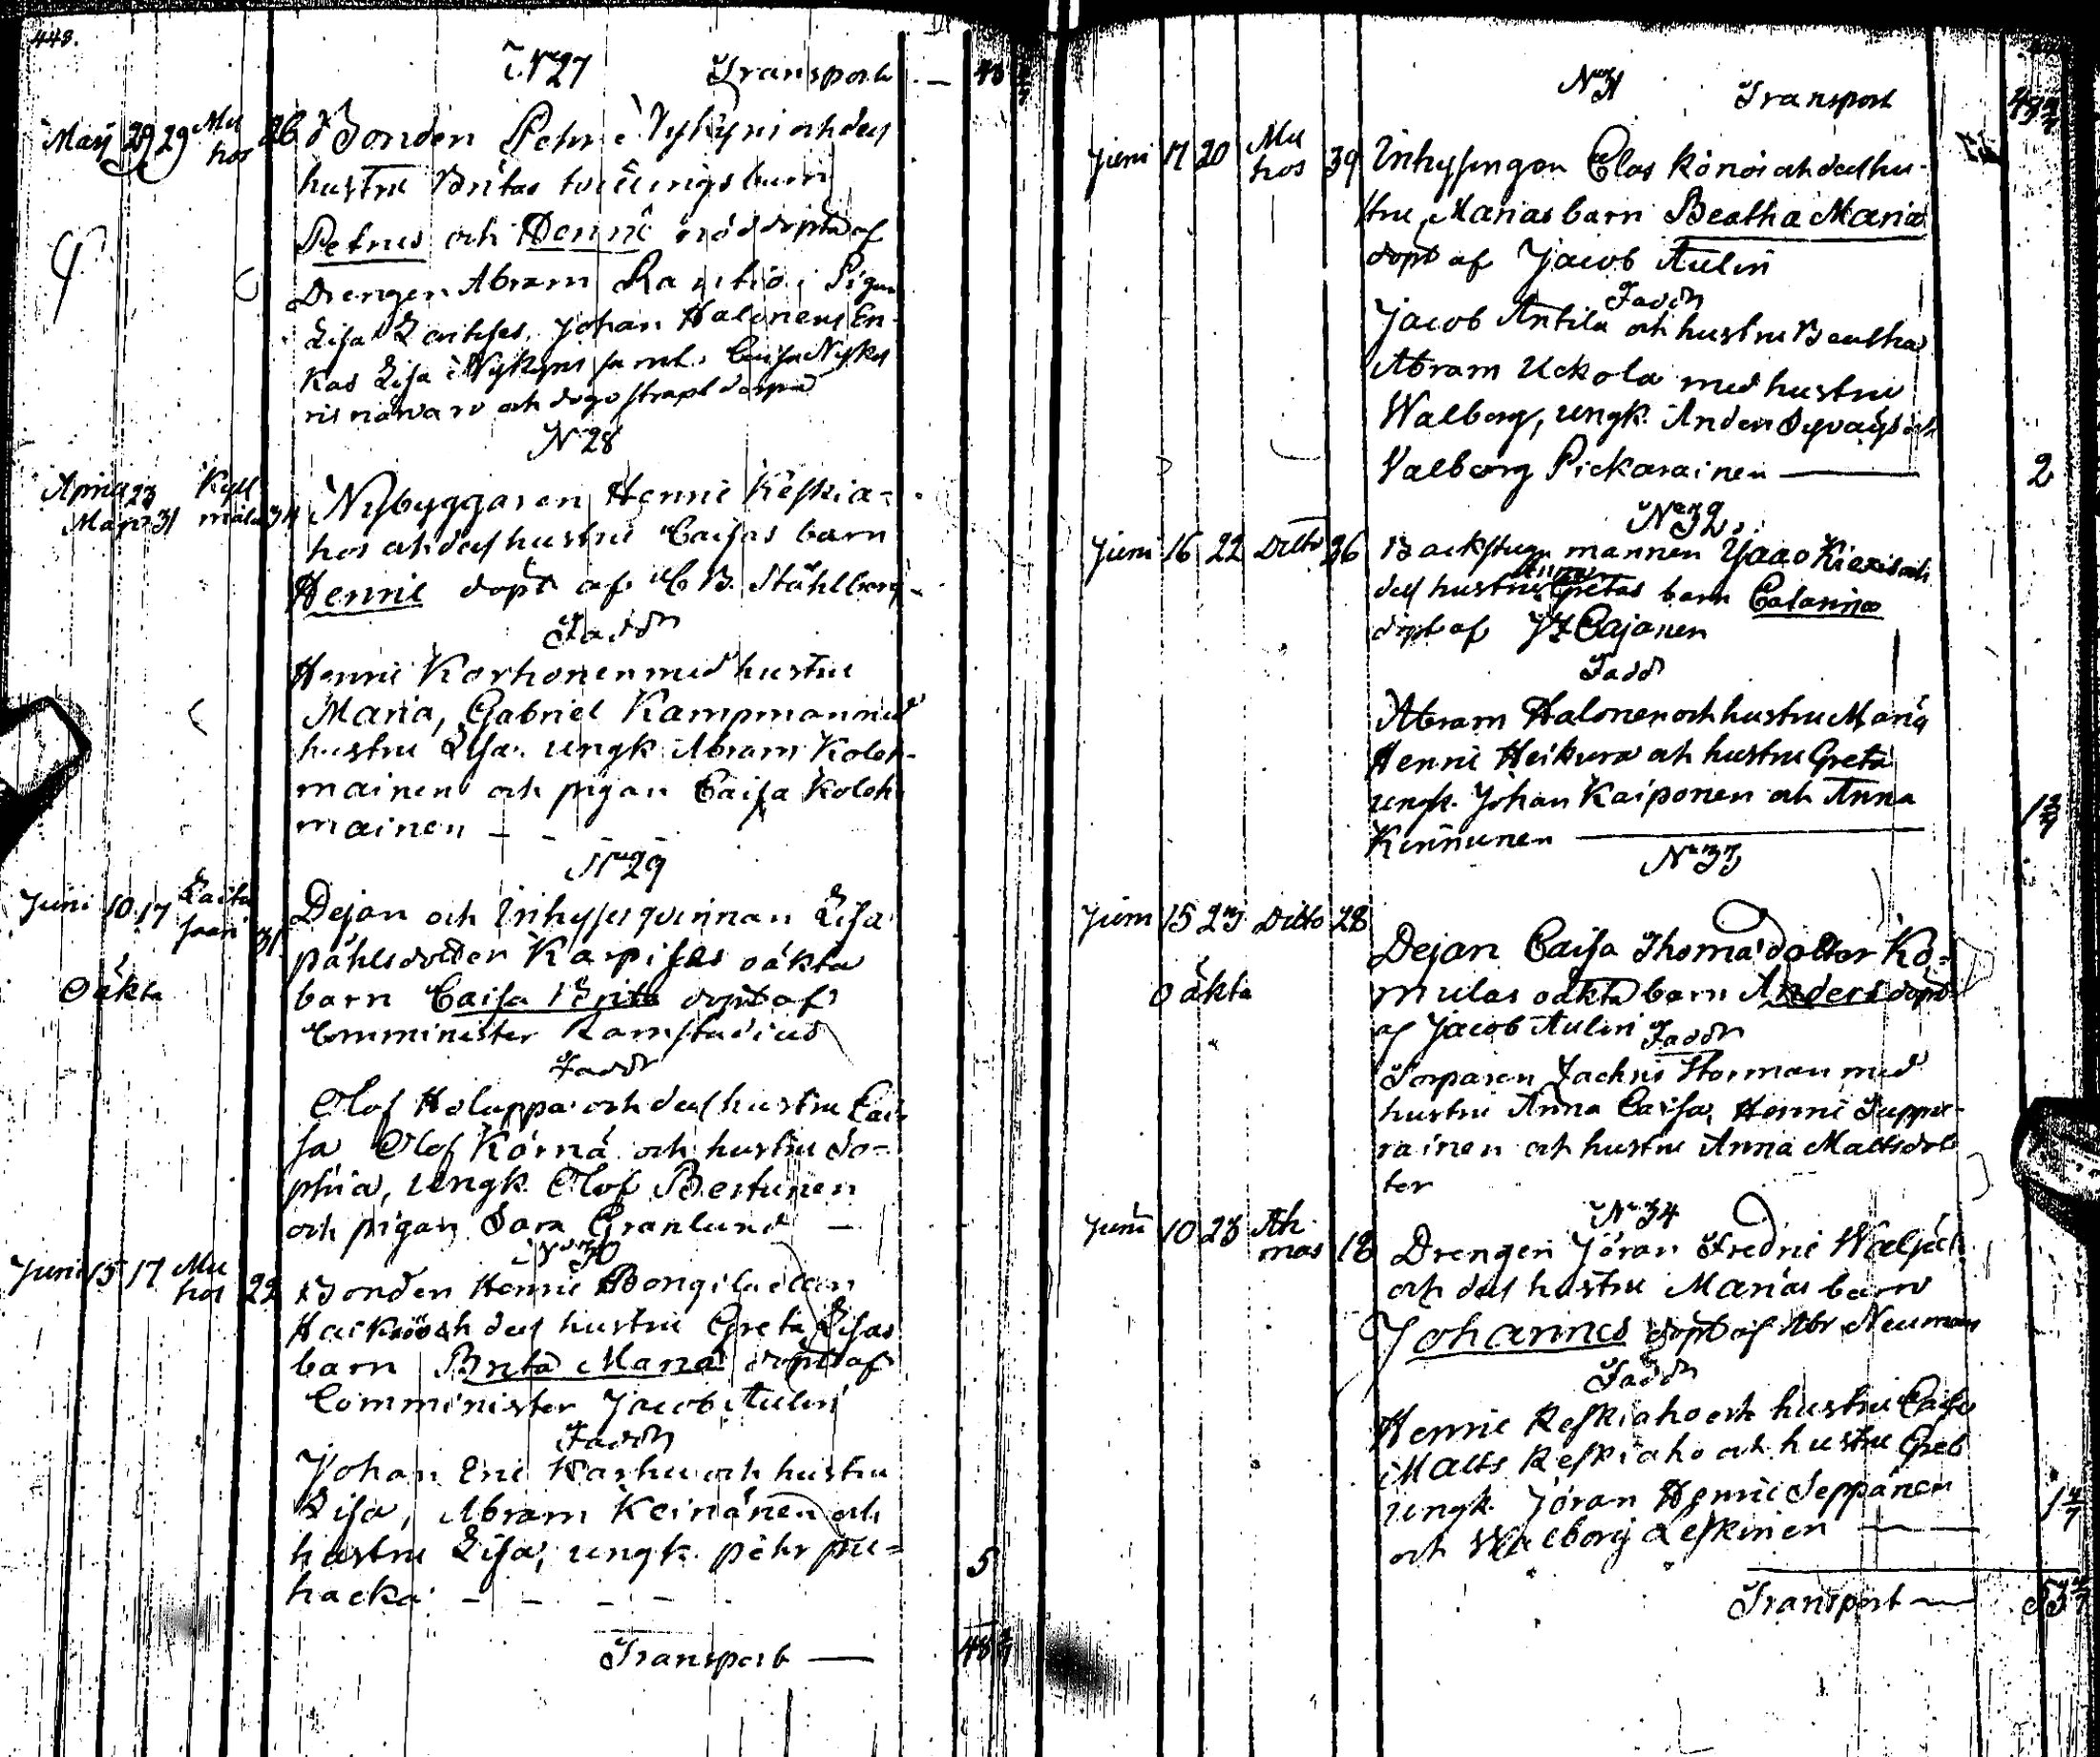 443.
N 27 Transport — 43
Maij 29 29 Mu hos 26 Bonden Pehr Nykyri och des
hustru Britas tvillingsbarn
Petrus och Henric nöddöpta af
Drengen Abram Pigan
Lisa Johan Halonens En-
kas Lisa Nykyri samt Caisa Nyky
ris närvaro och dogo strax
N 28
April 23 Maji 31 Kyll mälä 34 Nybyggaren Henric Keskia-
hos och des hustru Caisas barn
Henric döpt af C B Ståhlberg
Fadd
Henric Korhonen med hustru
Maria, Gabriel Kampman med
hustru Lisa. ungk Abram Koleh-
mainen och pigan Caisa Koleh
mainen — - - -
No 29
Juni 10 17 Laita saari 31 Dejan och Inhyses qvinnan Lisa
påhlsdotter Karpises oäkta
Oäkta barn Caisa Brita döpt af
Comminister Ramstadius
Faddr
Olof Holappa och des hustru Cai
sa Olof Körnä och hustru So-
phia, Ungk Olof Bertunen
och pigan Sara Granlund —
No 30
Juni 15 17 Mu hos 22 Bonden Henric Pongila ellan
och des hustru Greta Lisas
barn Brita Maria döpt af
Comminister Jacob Aulin
Faddr
Johan Eric Karhu och hustru
Lisa, Abram Keinänen och
hustru Lisa, ungk. pehr pu-
hacka - - - - 5
Transport — 48 3/4
N 31 Transport
Juni 17 20 Mu hos 39 Inhysingen Clas Könös och des hu-
stru Marias barn Beatha Maria
döpt af Jacob Aulin
Faddr
Jacob Antila och hustru Beatha
Abram Uckola med hustru
Walborg, ungk. Anders och
Valborg Pickarainen — 2
No 32
Juni 16 22 Ditto 36 Backstugu mannen och
des hustru Anna Gretas barn Catarina
döpt af Cajanen
Fadd
Abram Halonen och hustru Maria
Henric Heikura och hustru Greta
ungk. Johan Kaiponen och Anna
Kinnunen —
No 33
Juni 15 23 Ditto 28
Dejan Caisa Thomædotter Ko-
oäkta mulas oäkta barn Anders döpt
af Jacob Aulin Faddr
Torparen Zachris Storman med
hustru Anna Caisa, Henric Suppu-
rainen och hustru Anna Mattsdot
ter
No 34
Juni 10 23 Ah mas 18 Drengen Jöran Fredric
och des hustru Marias barn
Johannes döpt af Abr Neuman
Faddr
Henric Keskiaho och hustru Caisa
Matts Keskiaho och hustru Gret
ungk Jöran Henric Seppänen
och Walborg Leskinen —
Transport — 53